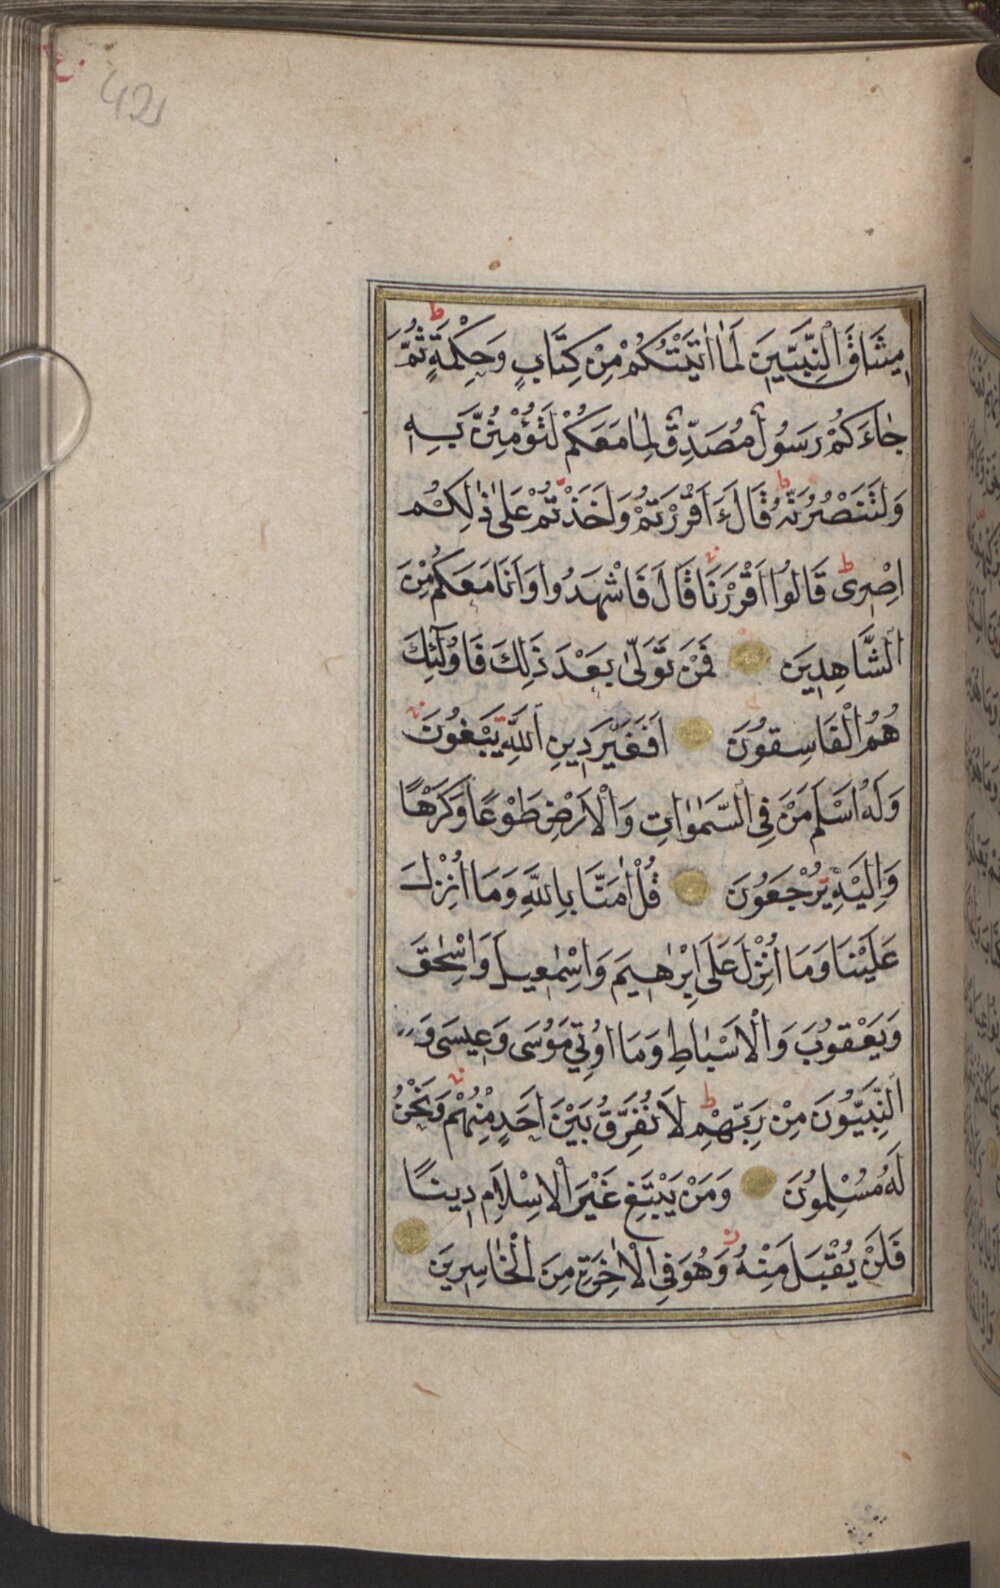 42
مِيثَاقَ النَّبِيّٖنَ لَمَٓا اٰتَيْتُكُمْ مِنْ كِتَابٍ وَحِكْمَةٍ ثُمَّ
جَٓاءَكُمْ رَسُولٌ مُصَدِّقٌ لِمَا مَعَكُمْ لَتُؤْمِنُنَّ بِهٖ
وَلَتَنْصُرُنَّهُ قَالَ ءَاَقْرَرْتُمْ وَاَخَذْتُمْ عَلٰى ذٰلِكُمْ
اِصْرٖى قَالُوا اَقْرَرْنَا قَالَ فَاشْهَدُوا وَاَنَا مَعَكُمْ مِنَ
الشَّاهِدِينَ فَمَنْ تَوَلّٰى بَعْدَ ذٰلِكَ فَاُولٰٓئِكَ
هُمُ الْفَاسِقُونَ اَفَغَيْرَ دِينِ اللّٰهِ يَبْغُونَ
وَلَهُٓ اَسْلَمَ مَنْ فِي السَّمٰوَاتِ وَالْاَرْضِ طَوْعًا وَكَرْهًا
وَاِلَيْهِ يُرْجَعُونَ قُلْ اٰمَنَّا بِاللّٰهِ وَمَا اُنْزِلَ
عَلَيْنَا وَمَا اُنْزِلَ عَلٰى اِبْرٰهِيمَ وَاِسْمٰعِيلَ وَاِسْحٰقَ
وَيَعْقُوبَ وَالْاَسْبَاطِ وَمَا اُوتِيَ مُوسٰى وَعِيسٰى وَ
النَّبِيُّونَ مِنْ رَبِّهِمْ لَا نُفَرِّقُ بَيْنَ اَحَدٍ مِنْهُمْ وَنَحْنُ
لَهُ مُسْلِمُونَ وَمَنْ يَبْتَغِ غَيْرَ الْاِسْلَامِ دِينًا
فَلَنْ يُقْبَلَ مِنْهُ وَهُوَ فِي الْاٰخِرَةِ مِنَ الْخَاسِرِينَ